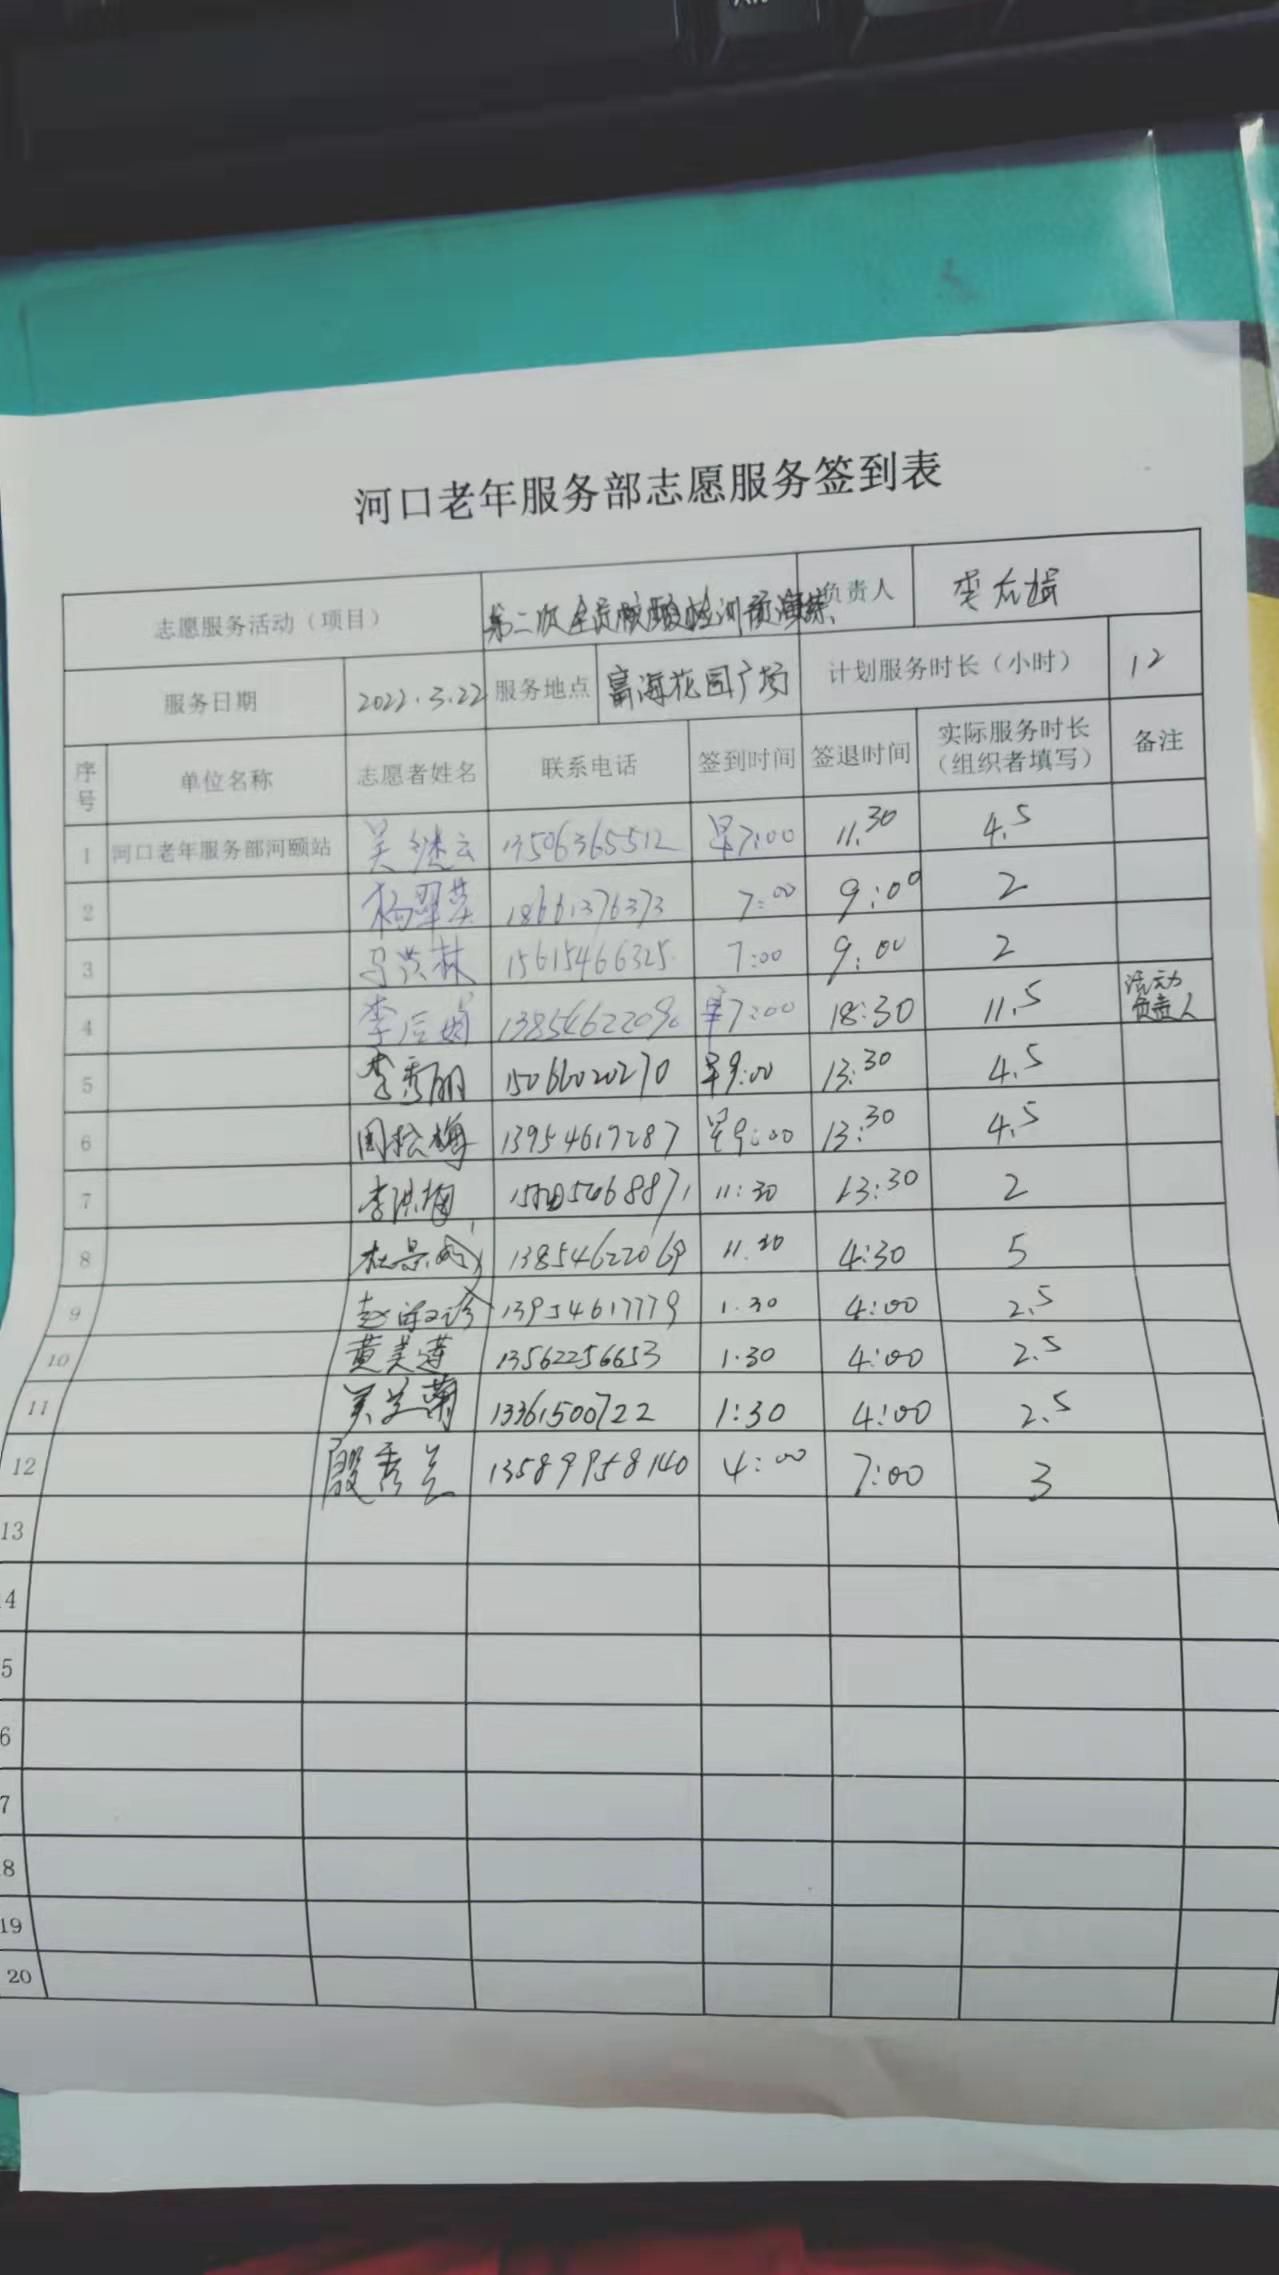 河口老年服务部志愿服务签到表
志愿服务活动（项目） 第二次全员核酸检测预演练 负责人 李左娟
服务日期 2022.3.22 服务地点 富海花园广场 计划服务时长（小时） 12
序号 单位名称 志愿者姓名 联系电话 签到时间 签退时间 实际服务时长（组织者填写） 备注
1 河口老年服务部河颐站 吴继云 13506365512 早7:00 11.30 4.5
2 杨翠英 18661376373 7:00 9:00 2
3 马洪林 15615466325 7:00 9:00 2
4 13854622090 早7:00 18:30 11.5 流动负责人
5 李秀丽 15066020270 早9:00 13:30 4.5
6 周松梅 13954617287 早9:00 13:30 4.5
7 李洪梅 11:30 13:30 2
8 13854622069 11.30 4:30 5
9 13954617779 1.30 4:00 2.5
10 黄美莲 13562256653 1.30 4:00 2.5
11 吴兰菊 13361500722 1:30 4:00 2.5
12 殷秀兰 13589958140 4:00 7:00 3
13
14
5
6
7
8
19
20